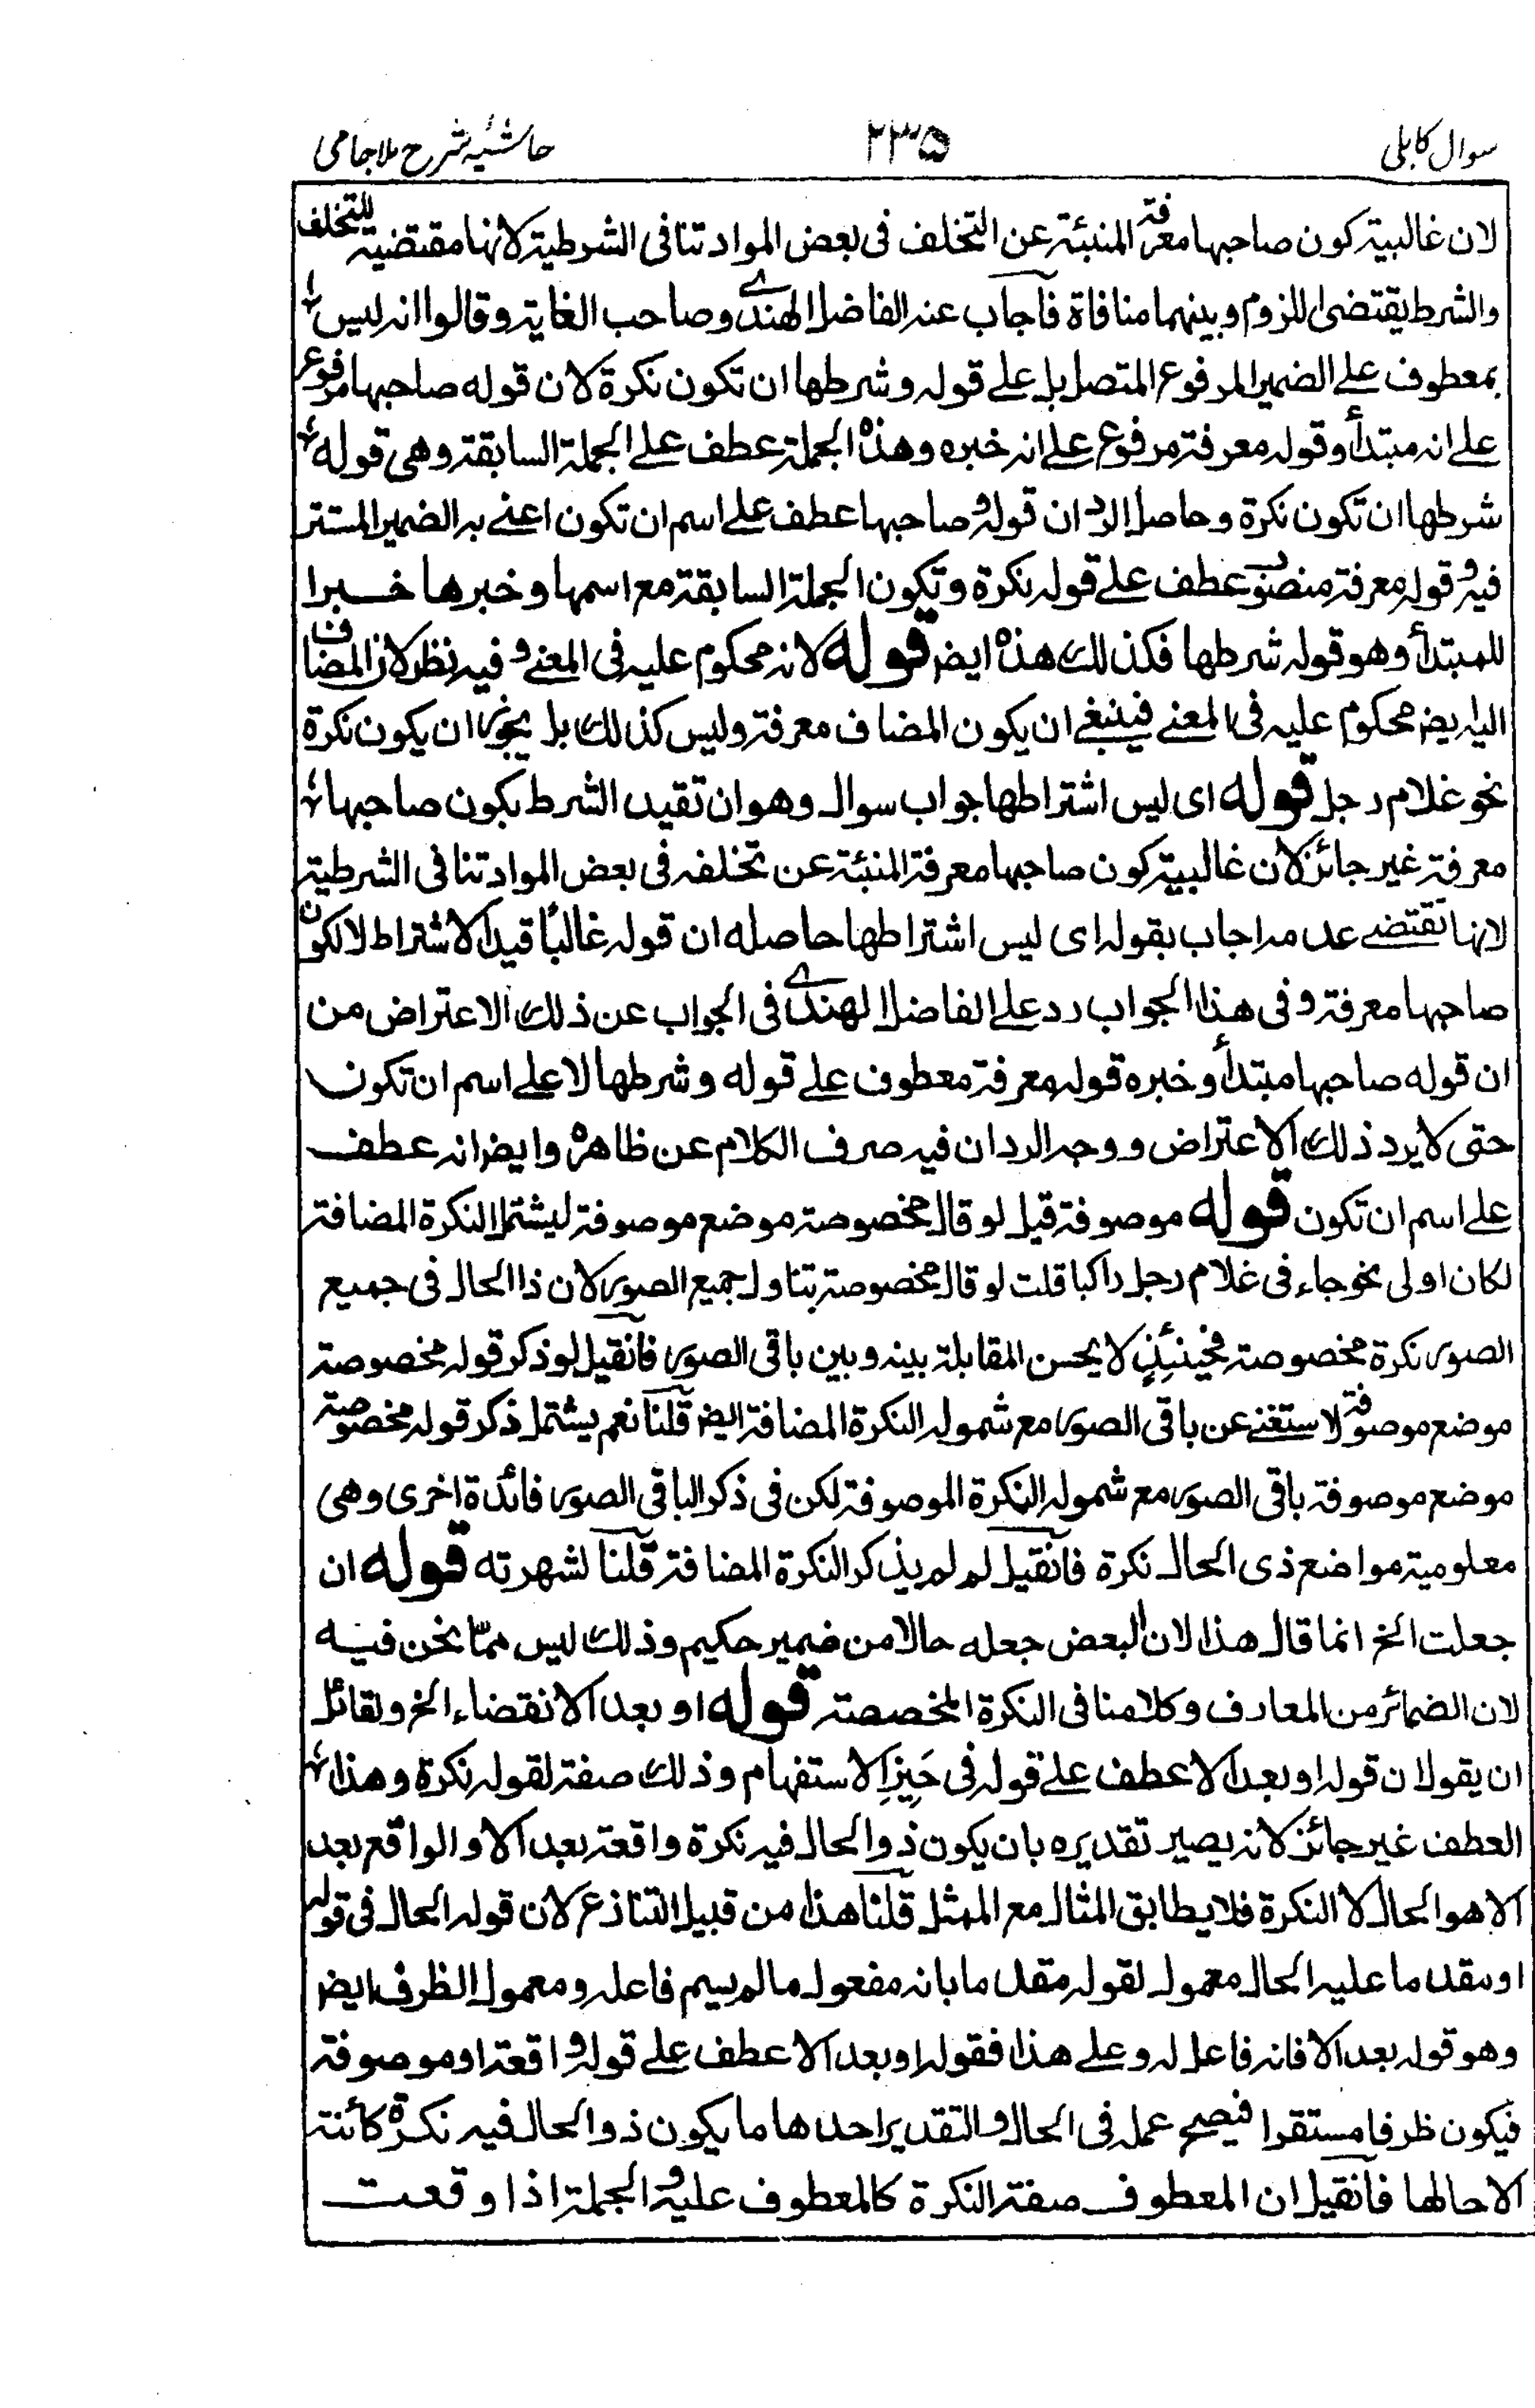 سوال کابلی ۲۳۵ حاشیہ شرح ملا جامی
لان غالبیة کون صاحبها معرفة المنبئة عن التخلف فی بعض المواد تنافی الشرطیة لانها مقتضیة للتخلف
والشرط یقتضی اللزوم وبینهما منافاة فاجاب عنه الفاضل الهندی وصاحب الغایة وقالوا انه لیس
بمعطوف علی الضمیر المرفوع المتصل بل علی قوله وشرطها ان تکون نکرة لان قوله صاحبها مرفوع
علی انه مبتدأ وقوله معرفة مرفوع علی انه خبره وهذه الجملة عطف علی الجملة السابقة وهی قوله
شرطها ان تکون نکرة وحاصل الرد ان قوله وصاحبها عطف علی اسم ان تکون اعنی به الضمیر المستتر
فیه وقوله معرفة منصوب عطف علی قوله نکرة وتکون الجملة السابقة مع اسمها وخبرها خبرا
للمبتدأ وهو قوله شرطها فکذلك هذه ایضا قوله لانه محکوم علیه فی المعنی وفیه نظر لان المضاف
الیه ایضا محکوم علیه فی المعنی فینبغی ان یکون المضاف معرفة ولیس کذلك بل یجوز ان یکون نکرة
نحو غلام رجل قوله ای لیس اشتراطها جواب سوال وهو ان تقیید الشرط بکون صاحبها
معرفة غیر جائز لان غالبیة کون صاحبها معرفة المنبئة عن تخلفه فی بعض المواد تنافی الشرطیة
لانها تقتضی عدمه اجاب بقوله ای لیس اشتراطها حاصله ان قوله غالبًا قید الاشتراط لا لکون
صاحبها معرفة وفی هذا الجواب رد علی الفاضل الهندی فی الجواب عن ذلك الاعتراض من
ان قوله صاحبها مبتدأ وخبره قوله معرفة معطوف علی قوله وشرطها لا علی اسم ان تکون
حتی لا یرد ذلك الاعتراض ووجه الرد ان فیه صرف الکلام عن ظاهره وایضا انه عطف
علی اسم ان تکون قوله موصوفة قیل لو قال مخصوصة موضع موصوفة لیشتمل النکرة المضافة
لکان اولی نحو جاء فی غلام رجل راکبا قلت لو قال مخصوصة یتناول جمیع الصور لان ذا الحال فی جمیع
الصور نکرة مخصوصة فحینئذٍ لا یحسن المقابلة بینه وبین باقی الصور فان قیل لو ذکر قوله مخصوصة
موضع موصوفة لاستغنی عن باقی الصور مع شموله النکرة المضافة ایضا قلنا نعم یشتمل ذکر قوله مخصوصة
موضع موصوفة باقی الصور مع شموله النکرة الموصوفة لکن فی ذکر الباقی الصور فائدة اخری وهی
معلومیة مواضع ذی الحال نکرة فان قیل لم لم یذکر النکرة المضافة قلنا لشهرته قوله ان
جعلت الخ انما قال هذا لان البعض جعله حالا من ضمیر حکیم وذلك لیس مما نحن فیه
لان الضمائر من المعارف وکلامنا فی النکرة المخصصة قوله او بعد الا نقضاء الخ ولقائل
ان یقول ان قوله او بعد الا عطف علی قوله فی حَیِّزِ الاستفهام وذلك صفة لقوله نکرة وهذا
العطف غیر جائز لانه یصیر تقدیره بان یکون ذو الحال فیه نکرة واقعة بعد الا والواقع بعد
الا هو الحال لا النکرة فلا یطابق المثال مع الممثل قلنا هذا من قبیل التنازع لان قوله الحال فی قوله
او مقدما علیه الحال معمول لقوله مقدما بانه مفعول ما لم یسم فاعله ومعمول الظرف ایضا
وهو قوله بعد الا فانه فاعل له وعلی هذا فقوله او بعد الا عطف علی قوله واقعة او موصوفة
فیکون ظرفا مستقرا فیصح عمله فی الحال والتقدیر احدها ما یکون ذو الحال فیه نکرة کائنة
الا حالها فان قیل ان المعطوف صفة النکرة کالمعطوف علیه والجملة اذا وقعت